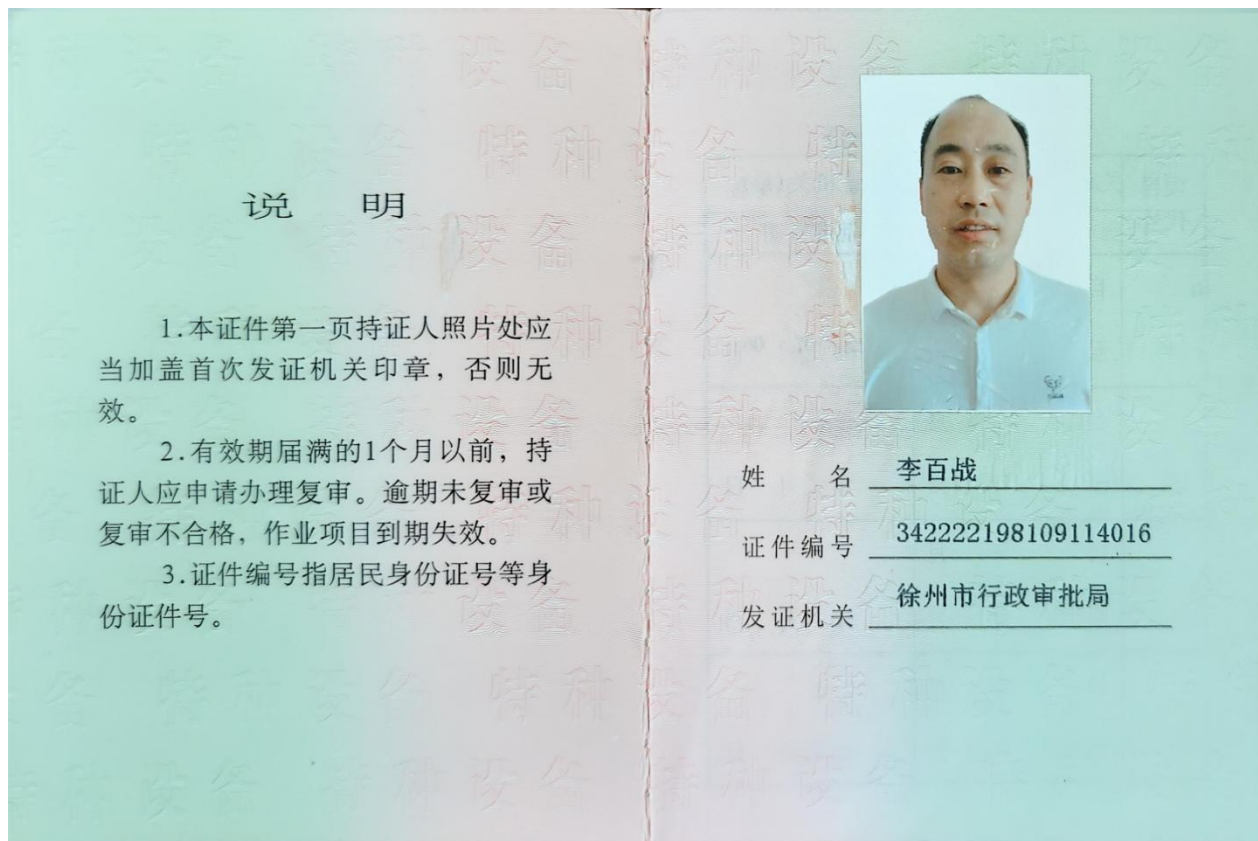 说 明
1.本证件第一页持证人照片处应
当加盖首次发证机关印章，否则无
效。
2.有效期届满的1个月以前，持
证人应申请办理复审。逾期未复审或
复审不合格，作业项目到期失效。
3.证件编号指居民身份证号等身
份证件号。
姓 名 李百战
证件编号 342222198109114016
发证机关 徐州市行政审批局
特种设备